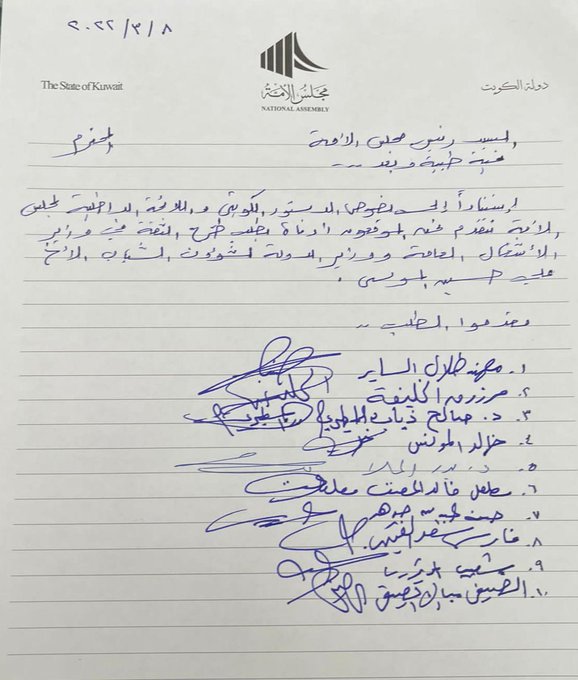 ٢٠٢٢/٣/٨
The State of Kuwait
دولة الكويت
مجلس الأمة
NATIONAL ASSEMBLY
السيد رئيس مجلس الأمة المحترم
تحية طيبة وبعد ...
استناداً إلى نصوص الدستور الكويتي واللائحة الداخلية لمجلس
الأمة نتقدم نحن الموقعون أدناه بطلب طرح الثقة في وزير
الأشغال العامة ووزير الدولة لشؤون الشباب الأخ
علي حسين الموسى .
مقدموا الطلب ..
١. مهند طلال الساير
٢. مرزوق الخليفة
٣. د. صالح ذياب المطيري
٤. خالد المونس
٥. د. بدر الملا
٦.
٧. حسن جوهر
٨. فارس سعد العتيبي
٩. شعيب
١٠. الصيفي مبارك الصيفي